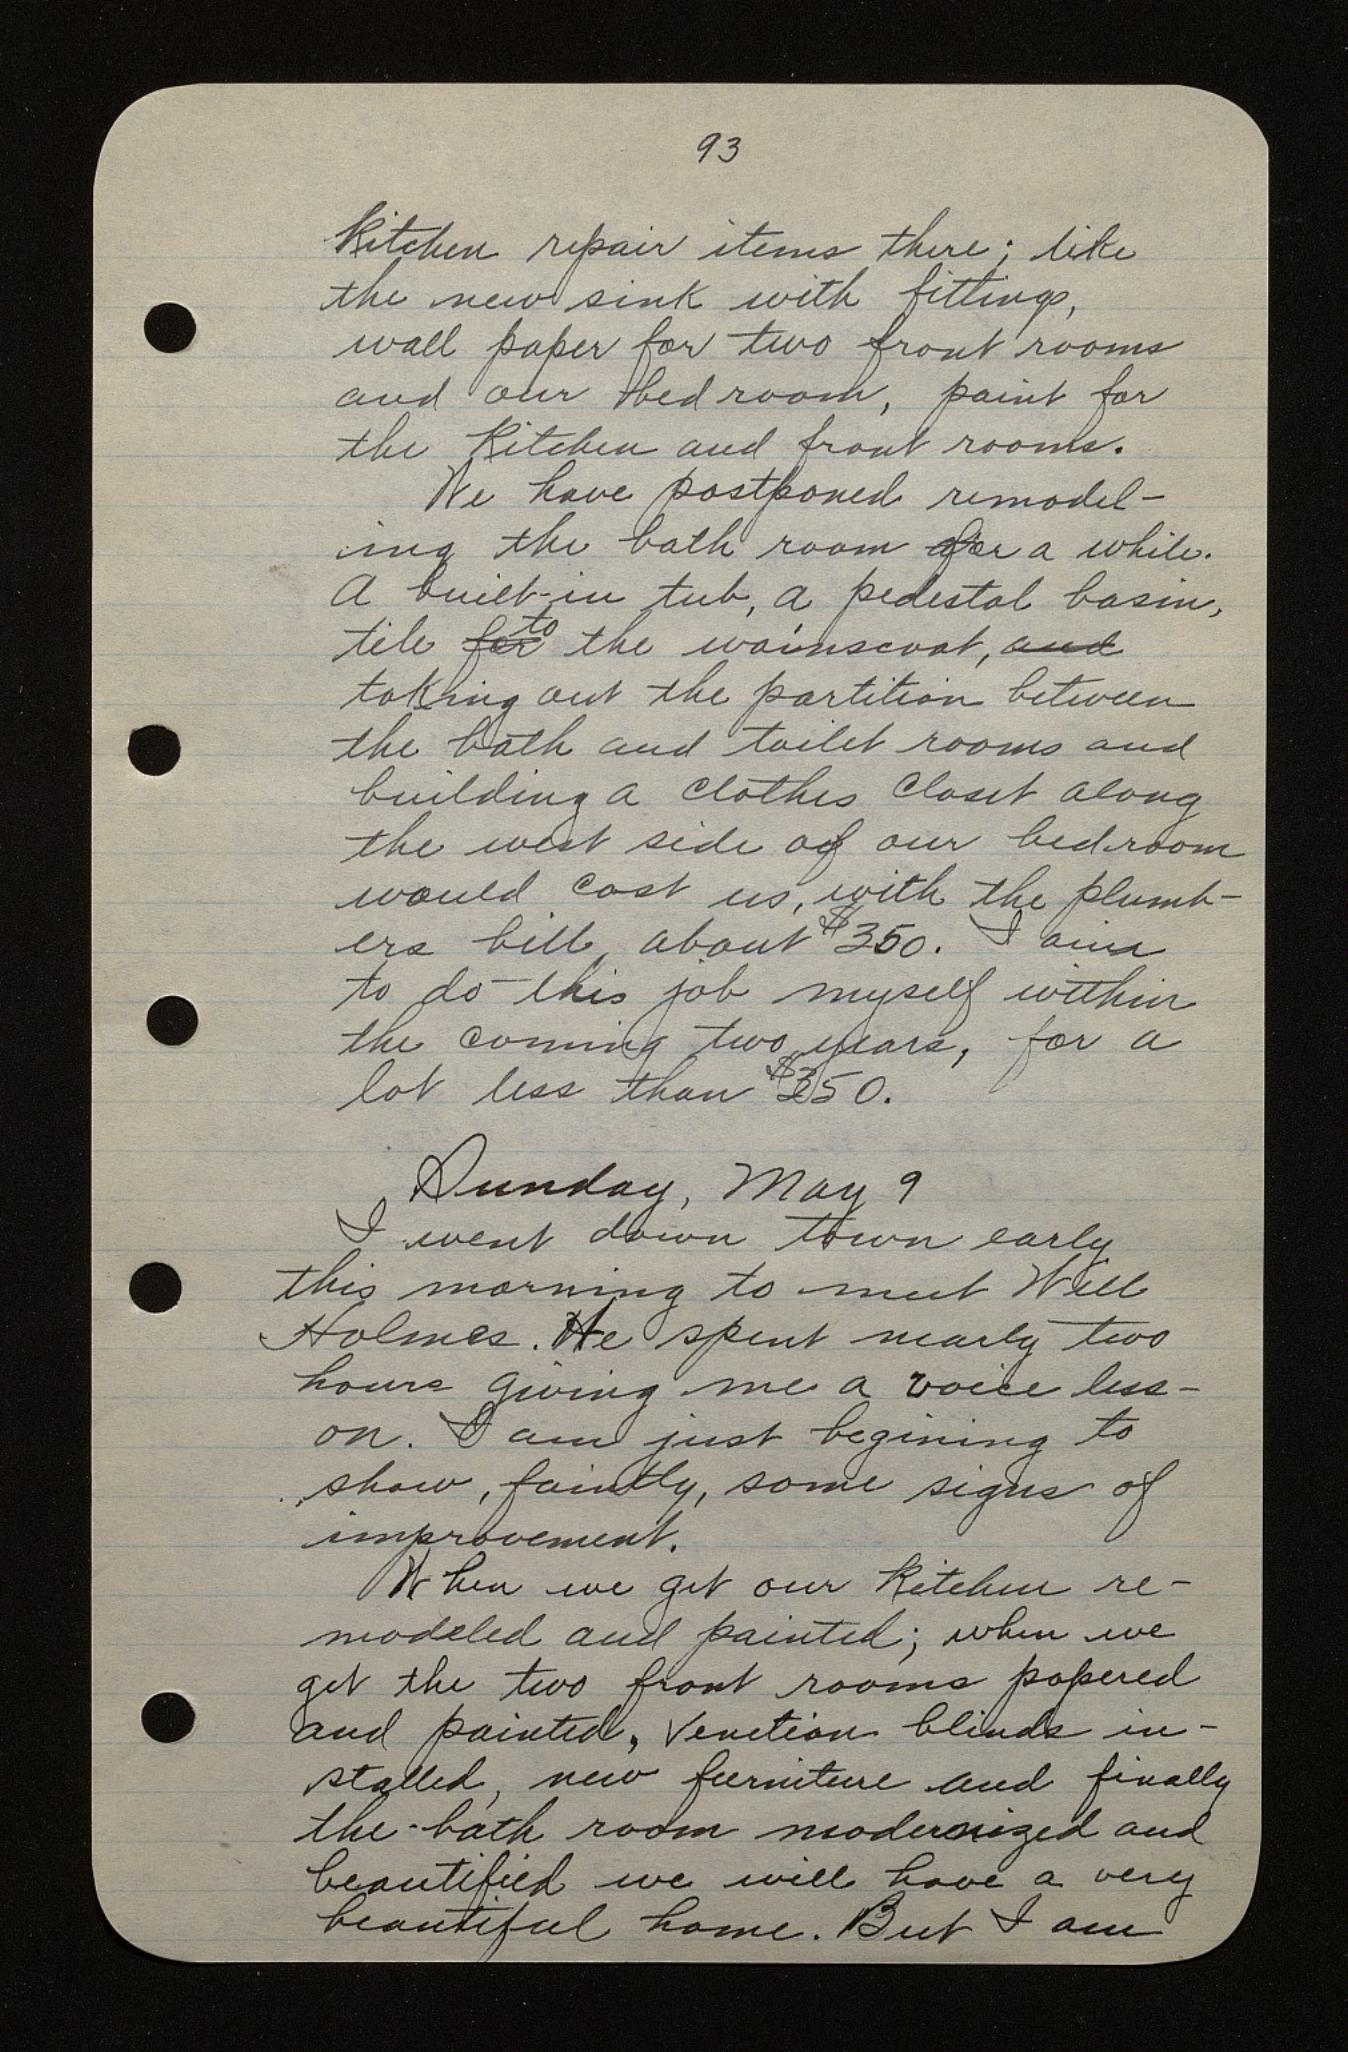 93
Kitchen repair items there; like
the new sink with fittings,
wall paper for two front rooms
and our bedroom, paint for
the Kitchen and front rooms.
We have postponed remodel-
ing the bath room for a while.
A built-in tub, a pedestal basin,
tile for to the wainscoat, and
taking out the partition between
the bath and toilet rooms and
building a clothes closet along
the west side of our bedroom
would cost us, with the plumb-
ers bill, about $350. I aim
to do this job myself within
the coming two years, for a
lot less than $350.
Sunday, May 9
I went down town early
this morning to meet Will
Holmes. He spent nearly two
hours giving me a voice less-
on. I am just begining to
show, faintly, some signs of
improvement.
When we get our Kitchen re-
modeled and painted; when we
get the two front rooms papered
and painted, Venetian blinds in-
stalled, new furniture and finally
the bath room modernized and
beautified we will have a very
beautiful home. But I am